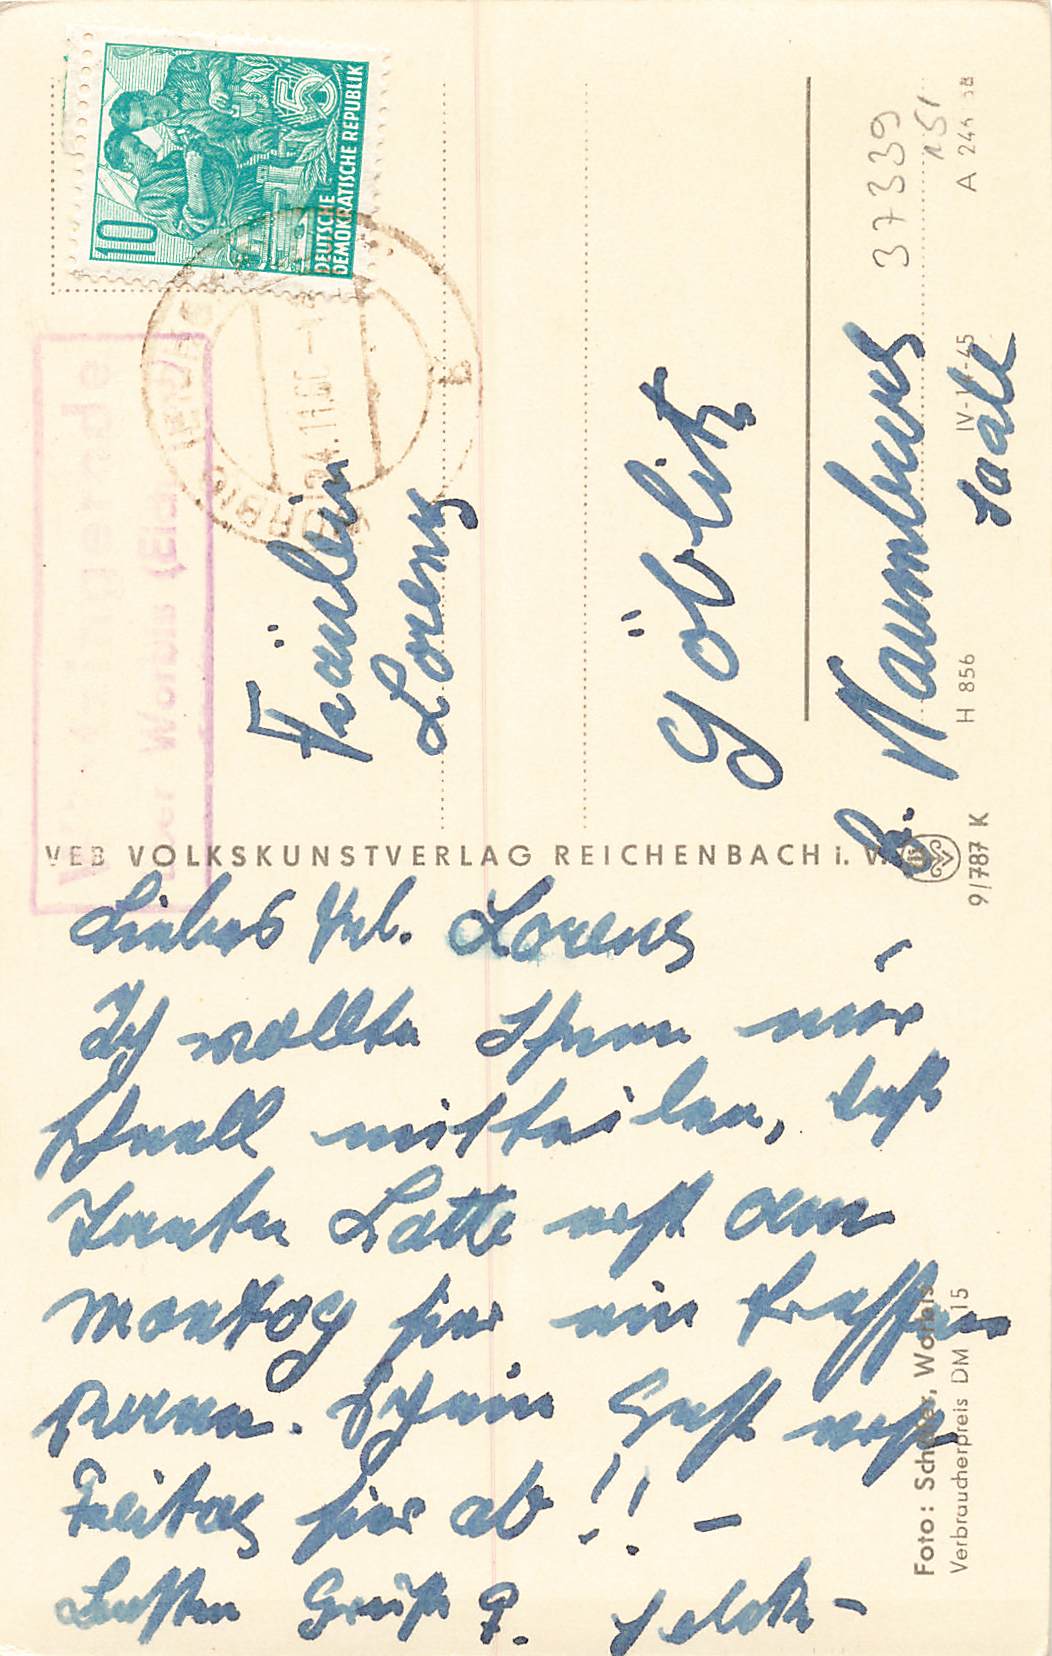 10
DEUTSCHE
DEMOKRATISCHE REPUBLIK
5
24.11.60
b
bei Worbis (Eic
Fräulein
Lorenz
Göblitz
b. Naumburg
Saale
37339
151
A 244 58
IV-14-45
H 856
9/787 K
VEB VOLKSKUNSTVERLAG REICHENBACH i. V.
Liebes Frl. Lorenz
Ich wollte Ihnen nur
schnell mitteilen, daß
Tante Lotte erst am
Montag hier
Gast erst
Freitag hier ab!! –
Besten Grüße
Foto: Schäfer, Worbis
Verbraucherpreis DM 15